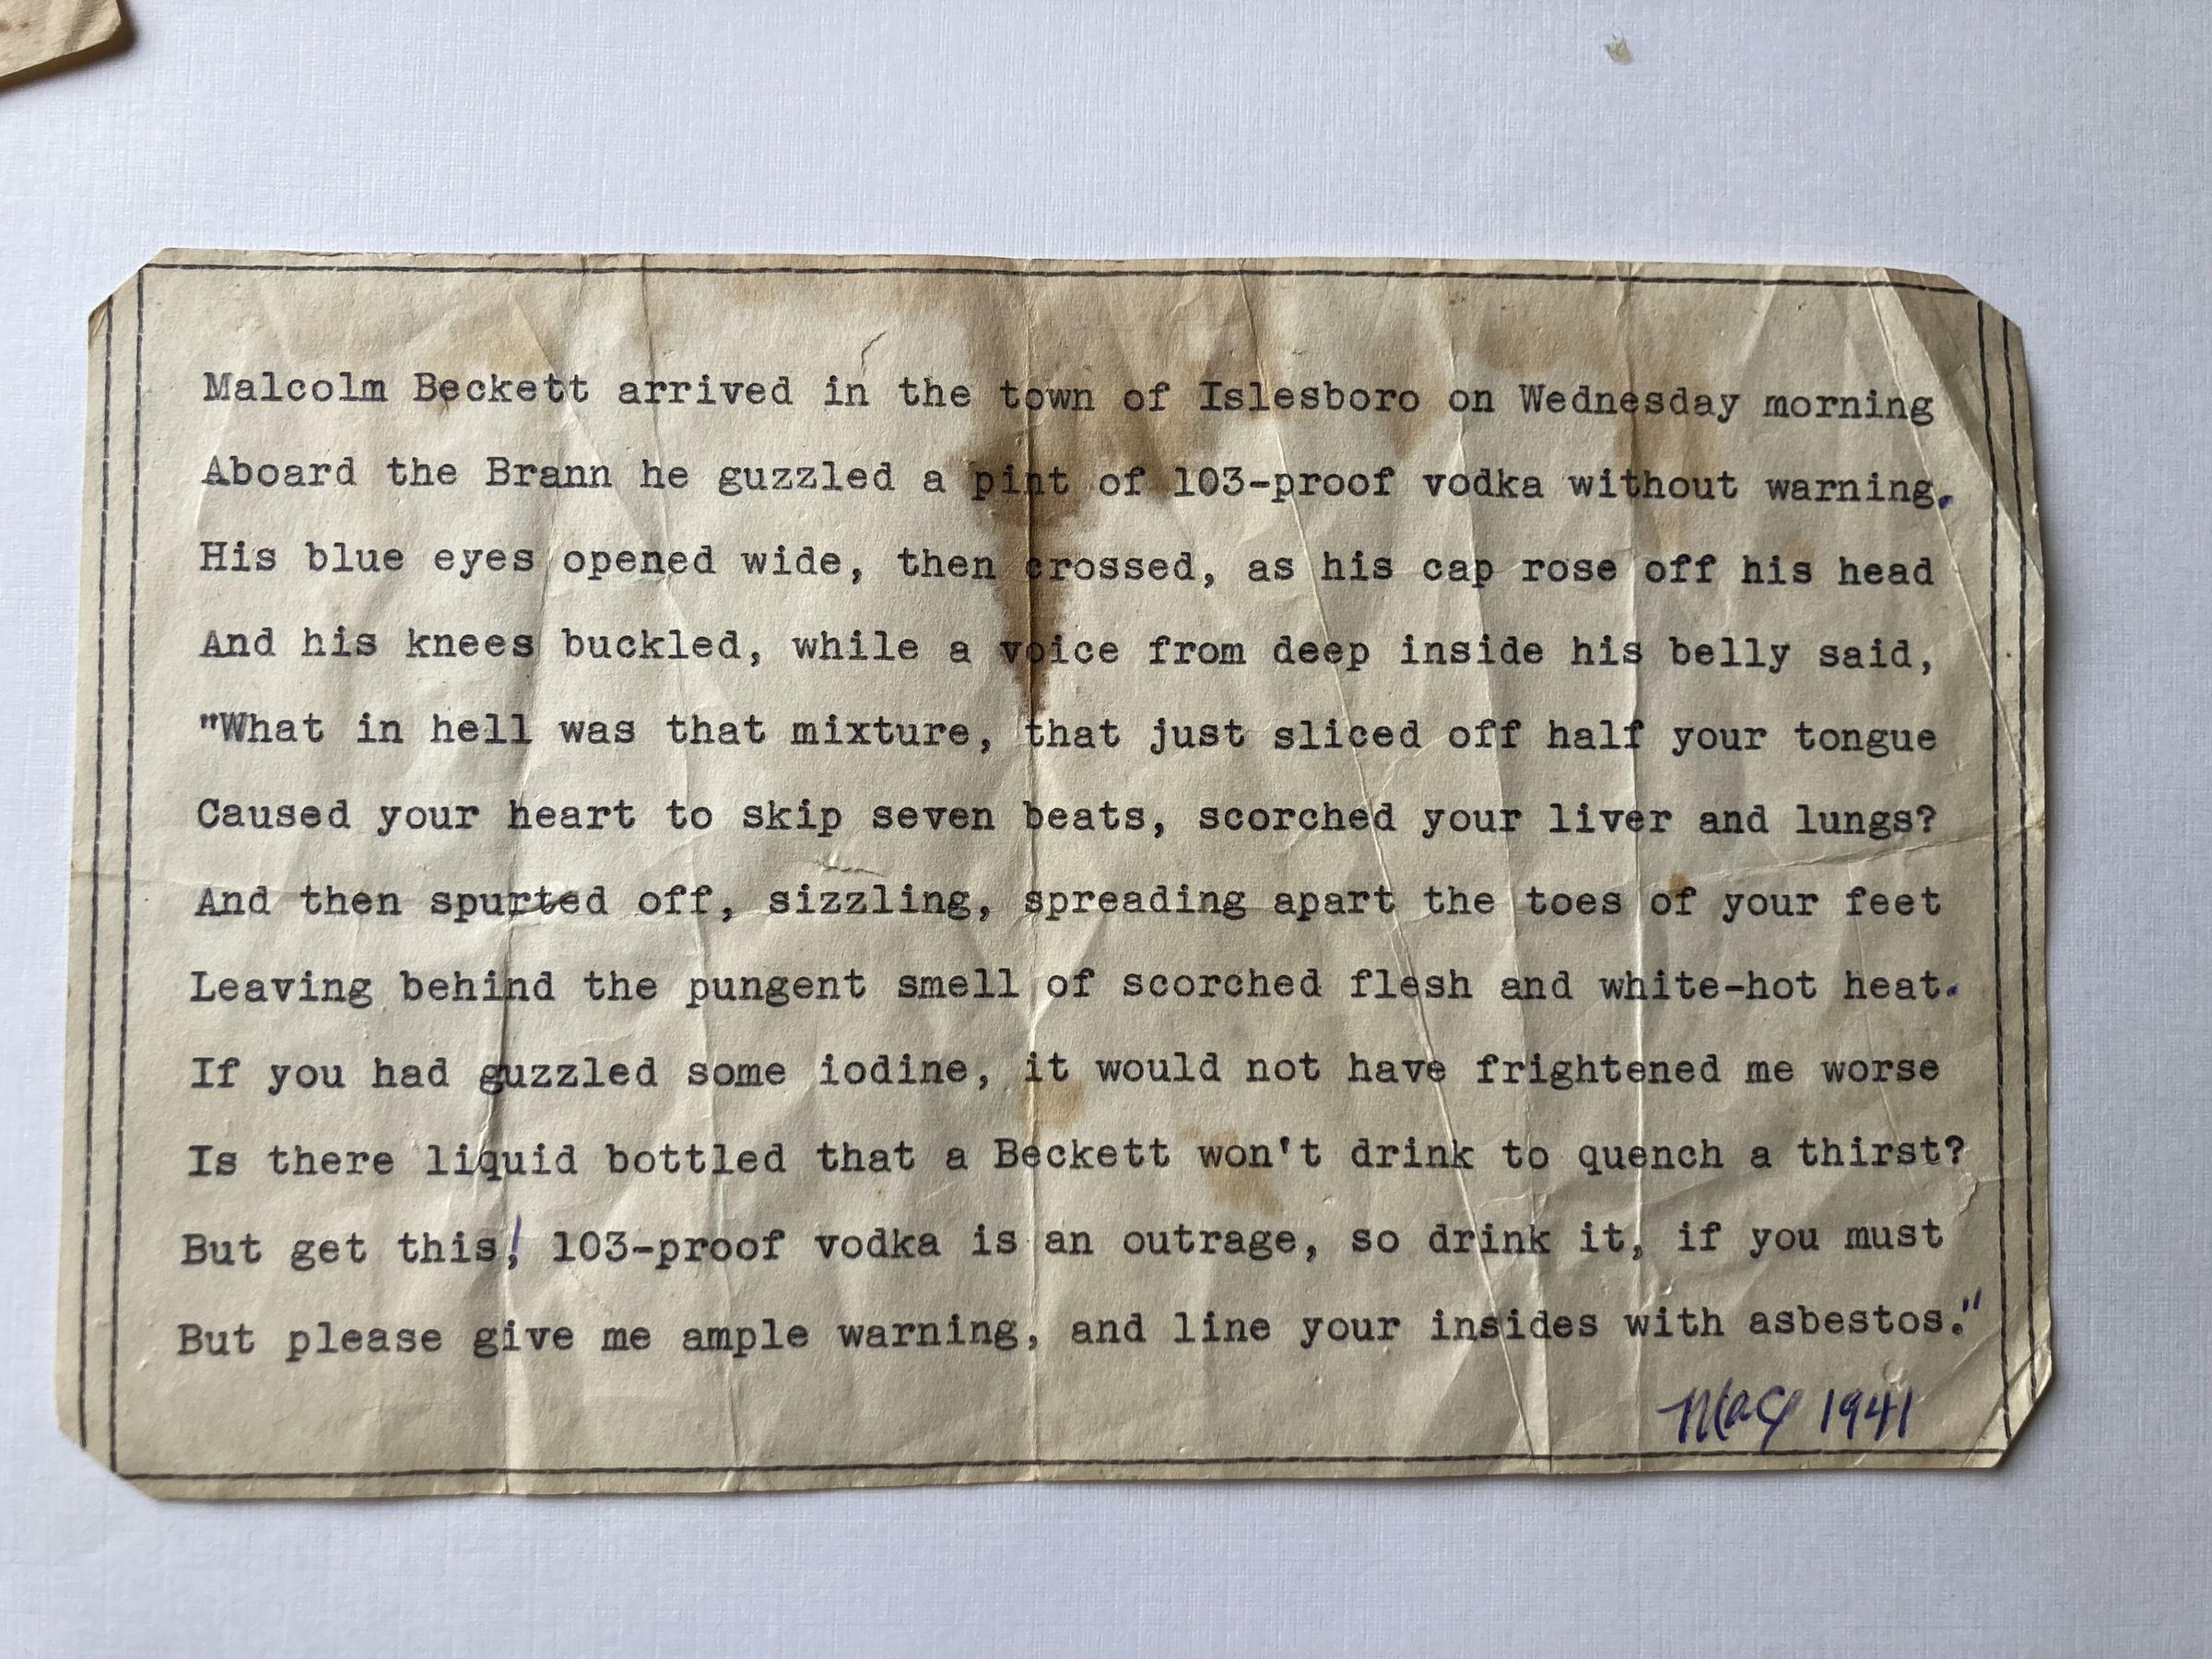 Malcolm Beckett arrived in the town of Islesboro on Wednesday morning
Aboard the Brann he guzzled a pint of 103-proof vodka without warning.
His blue eyes opened wide, then crossed, as his cap rose off his head
And his knees buckled, while a voice from deep inside his belly said,
"What in hell was that mixture, that just sliced off half your tongue
Caused your heart to skip seven beats, scorched your liver and lungs?
And then spurted off, sizzling, spreading apart the toes of your feet
Leaving behind the pungent smell of scorched flesh and white-hot heat.
If you had guzzled some iodine, it would not have frightened me worse
Is there liquid bottled that a Beckett won't drink to quench a thirst?
But get this! 103-proof vodka is an outrage, so drink it, if you must
But please give me ample warning, and line your insides with asbestos."
May 1941